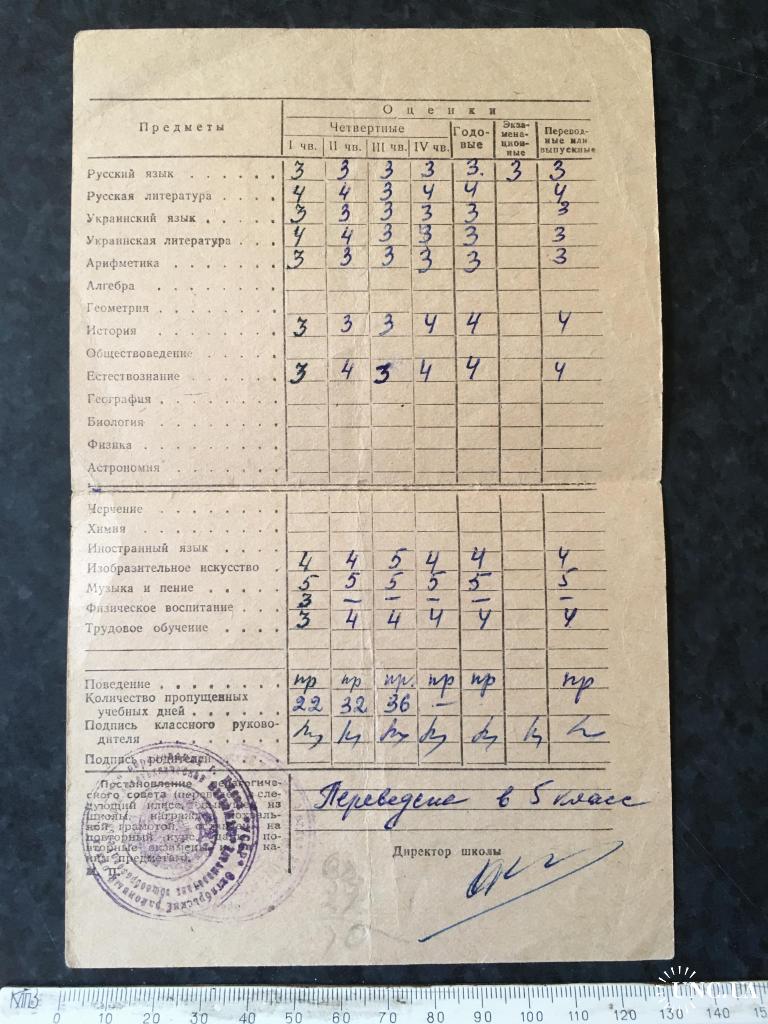 Предметы
Оценки
Четвертные
Годо-
вые
Экза-
мена-
цион-
ные
Перевод-
ные или
выпускные
I чв. II чв. III чв. IV чв.
Русский язык . . . . . 3 3 3 3 3. 3 3
Русская литература . . . . 4 4 3 4 4 4
Украинский язык . . . . . 3 3 3 3 3 3
Украинская литература . . . 4 4 3 3 3 3
Арифметика . . . . . . 3 3 3 3 3 3
Алгебра . . . . . .
Геометрия . . . . . .
История . . . . . . 3 3 3 4 4 4
Обществоведение . . . .
Естествознание . . . . . 3 4 3 4 4 4
География . . . . . .
Биология . . . . . .
Физика . . . . . .
Астрономия . . . . . .
Черчение . . . . . .
Химия . . . . . .
Иностранный язык . . . .
Изобразительное искусство . 4 4 5 4 4 4
Музыка и пение . . . . 5 5 5 5 5 5
Физическое воспитание . . . 3 – – – – –
Трудовое обучение . . . . 3 4 4 4 4 4
Поведение . . . . . . . пр пр пр. пр пр пр
Количество пропущенных
учебных дней . . . . . 22 32 36 –
Подпись классного руково-
дителя . . . . . . .
Подпись родителей
Постановление
сового совета
Переведена в 5 класс
Директор школы
КПЗ
0 10 20 30 40 50 60 70 80 90 100 110 120 130 140
UNC.UA